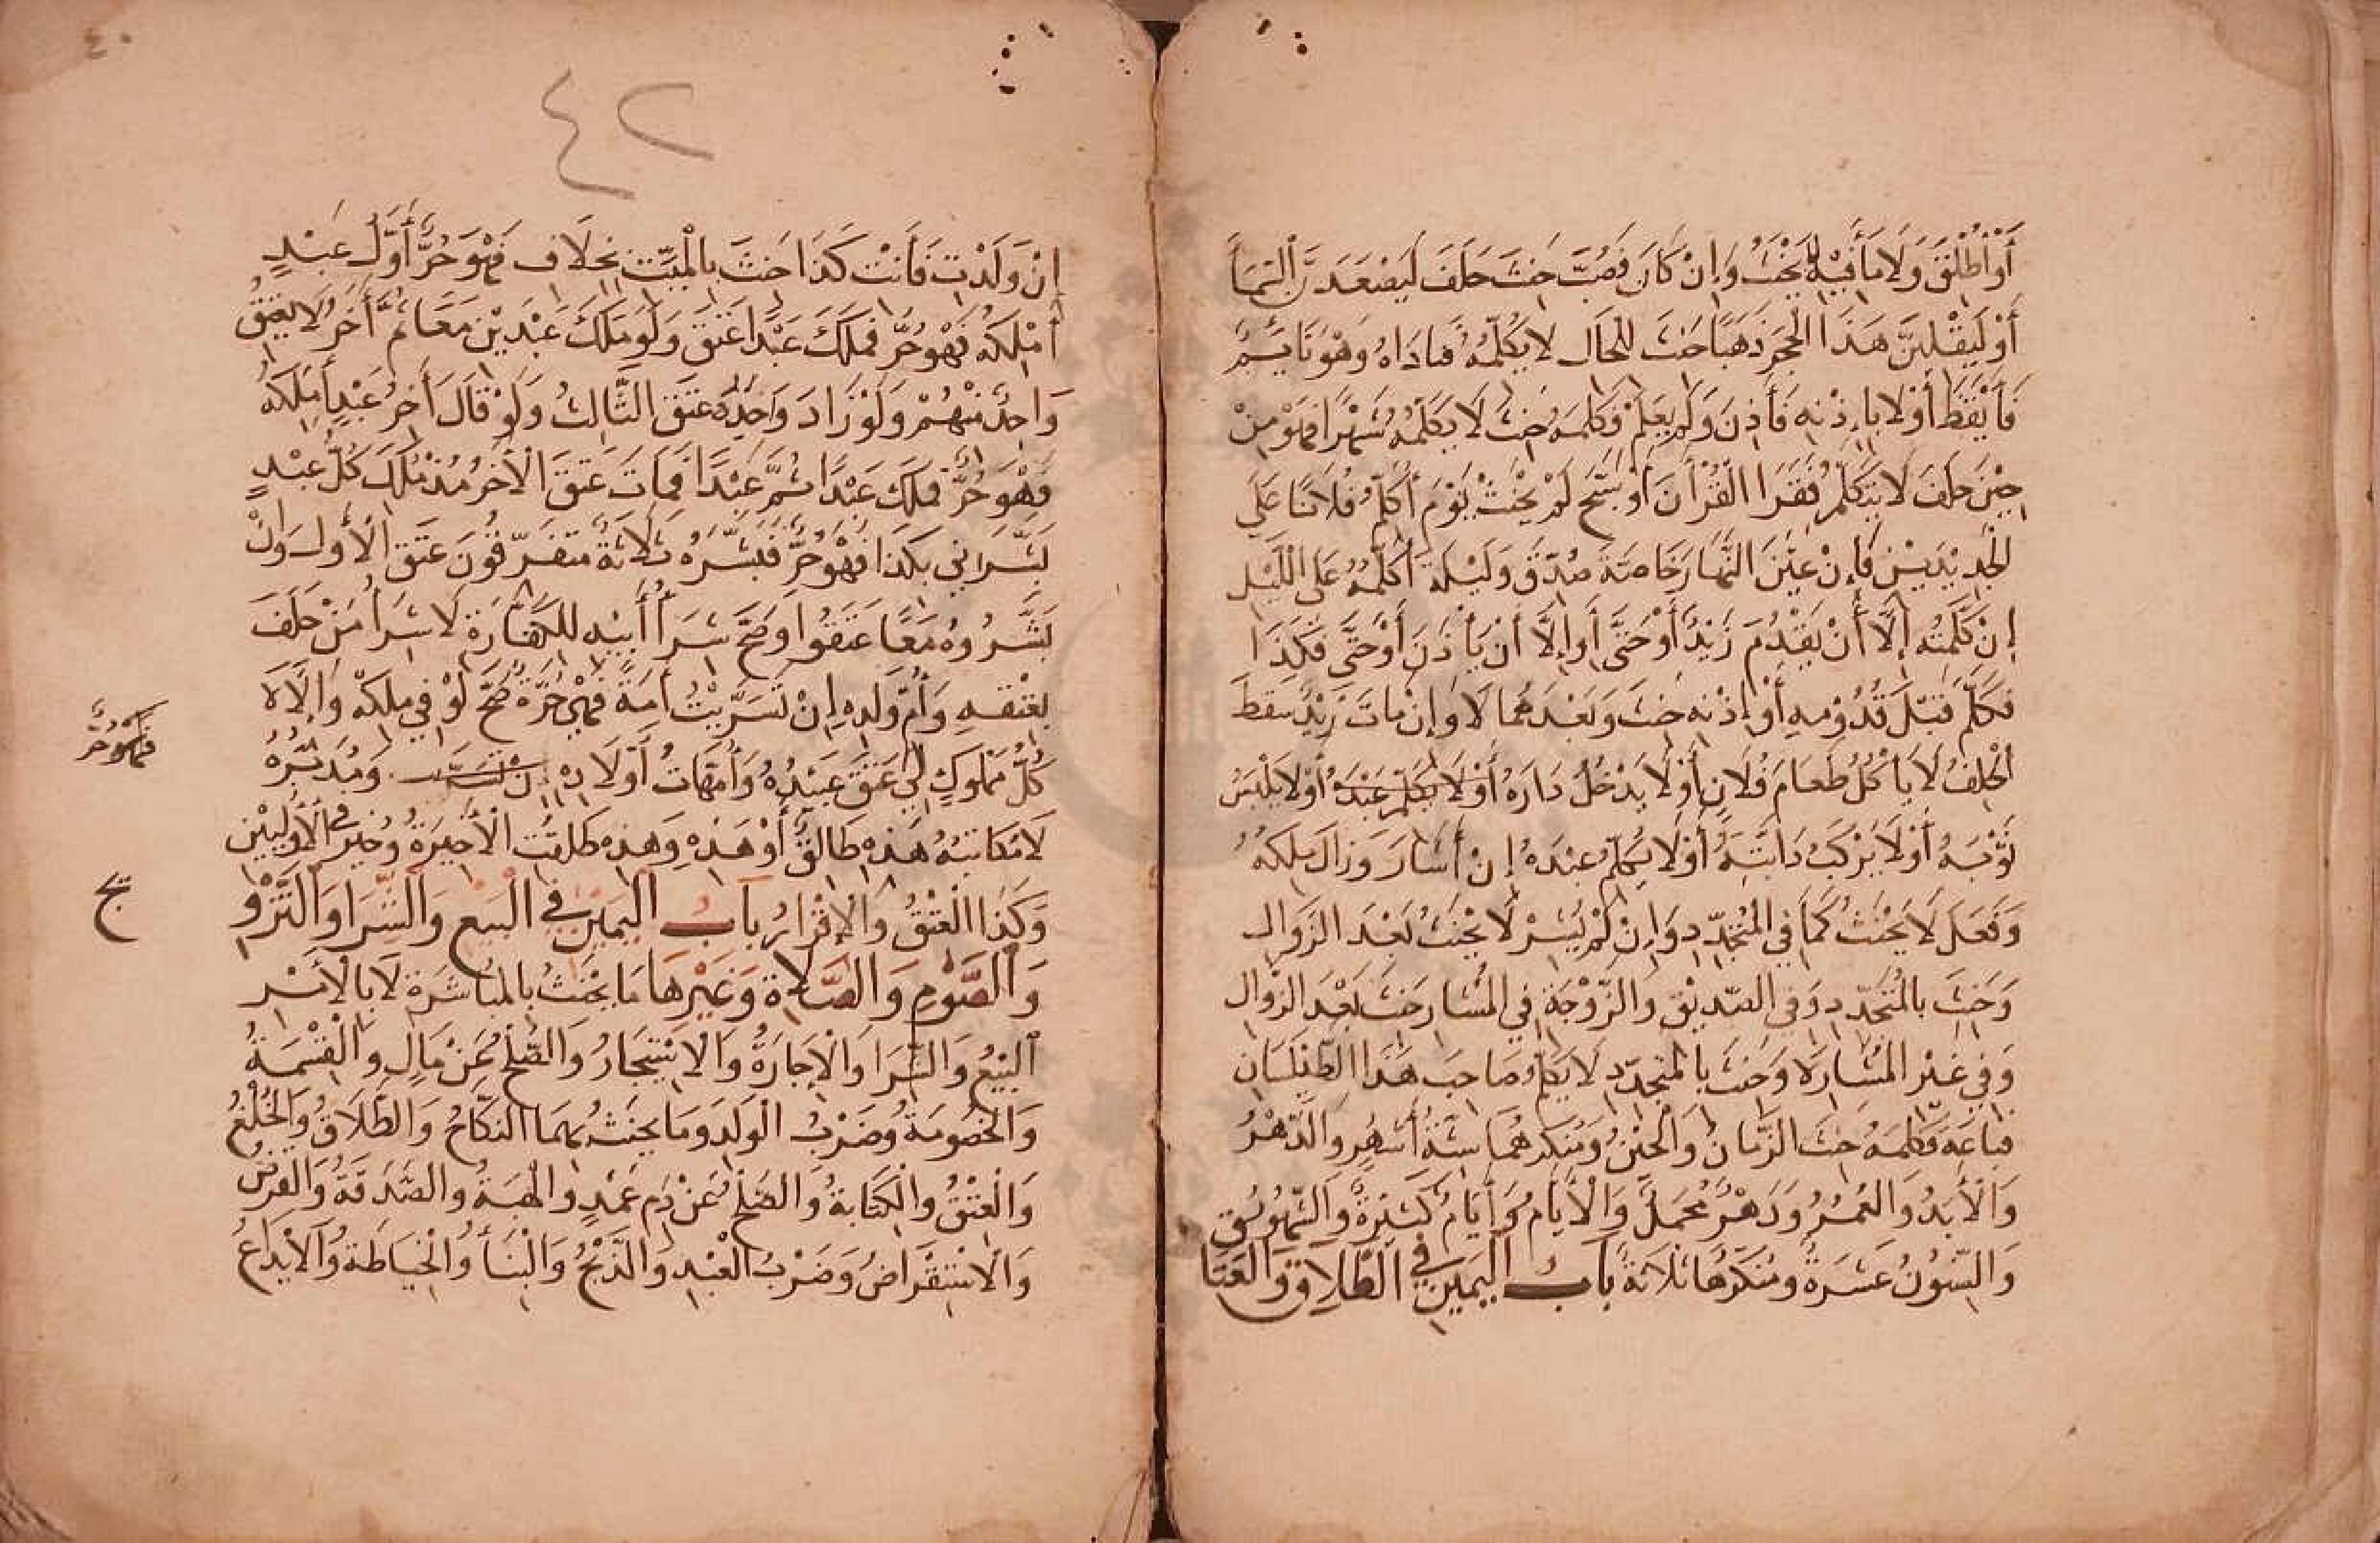 أَوْ أَطْلَقَ وَلَا مَاءَ فِيْهِ لَا يَحْنَثُ وَإِنْ كَانَ فَصُبَّ حَنَثَ حَلَفَ لَيَصْعَدَنَّ السَّمَاءَ
أَوْ لَيَقْلِبَنَّ هَذَا الْحَجَرَ ذَهَبًا حَنَثَ لِلْحَالِ لَا يُكَلِّمُهُ فَنَادَاهُ وَهُوَ نَائِمٌ
فَأَيْقَظَ أَوْ لَا بِإِذْنِهِ فَأَذِنَ وَلَمْ يَعْلَمْ فَكَلَّمَهُ حَنَثَ لَا يُكَلِّمُهُ شَهْرًا فَهُوَ مِنْ
حِيْنَ حَلَفَ لَا يَتَكَلَّمُ فَقَرَأَ الْقُرْأَنَ أَوْ سَبَّحَ لَمْ يَحْنَثْ يَوْمَ أُكَلِّمُ فُلَانًا عَلَى
الْجَدِيْدَيْنِ فَإِنْ عَيَّنَ النَّهَارَ خَاصَّةً صُدِّقَ وَلَيْلَةَ أُكَلِّمُهُ عَلَى اللَّيْلِ
إِنْ كَلَّمْتُهُ إِلَّا أَنْ يَقْدُمَ زَيْدٌ أَوْ حَتَّى أَوْ إِلَّا أَنْ يَأْذَنَ أَوْ حَتَّى فَكَذَا
فَكَلَّمَ قَبْلَ قُدُوْمِهِ أَوْ إِذْنِهِ حَنَثَ وَبَعْدَهُمَا لَا وَإِنْ مَاتَ زَيْدٌ سَقَطَ
الْحَلِفُ لَا يَأْكُلُ طَعَامَ فُلَانٍ أَوْ لَا يَدْخُلُ دَارَهُ أَوْ لَا يُكَلِّمُ عَبْدَهُ أَوْ لَا يَلْبَسُ
ثَوْبَهُ أَوْ لَا يَرْكَبُ دَابَّتَهُ أَوْ لَا يُكَلِّمُ عَبْدَهُ إِنْ أَشَارَ وَزَالَ مِلْكُهُ
وَفَعَلَ لَا يَحْنَثُ كَمَا فِي الْمُتَجَدِّدِ وَإِنْ لَمْ يُشِرْ لَا يَحْنَثُ بَعْدَ الزَّوَالِ
وَحَنِثَ بِالْمُتَجَدِّدِ وَفِي الصَّدِيْقِ وَالزَّوْجَةِ فِي الْمُشَارِ حَنَثَ بَعْدَ الزَّوَالِ
وَفِي غَيْرِ الْمُشَارِ لَا وَحَنَثَ بِالْمُتَجَدِّدِ لَا يُكَلِّمُ صَاحِبَ هَذَا الطَّيْلَسَانِ
فَبَاعَهُ فَكَلَّمَهُ حَنَثَ الزَّمَانُ وَالْحِيْنُ وَمُنَكَّرُهُمَا سِتَّةُ أَشْهُرٍ وَالدَّهْرُ
وَالْأَبَدُ وَالْعُمْرُ وَدَهْرٌ مُجْمَلٌ وَالْأَيَّامُ وَأَيَّامٌ كَثِيْرَةٌ وَالشُّهُوْرُ
وَالسِّنُوْنُ عَشَرَةٌ وَمُنَكَّرُهَا ثَلَاثَةٌ بَابُ الْيَمِيْنِ فِي الطَّلَاقِ وَالْعَتَاقِ
٤٢
إِنْ وَلَدْتِ فَأَنْتِ كَذَا حَنَثَ بِالْمَيِّتِ بِخِلَافِ فَهُوَ حُرٌّ أَوَّلُ عَبْدٍ
أَمْلِكُهُ فَهُوَ حُرٌّ فَمَلَكَ عَبْدًا عَتَقَ وَلَوْ مَلَكَ عَبْدَيْنِ مَعًا ثُمَّ أَخَرَ لَا يَعْتِقُ
وَاحِدٌ مِنْهُمْ وَلَوْ زَادَ وَحْدَهُ عَتَقَ الثَّالِثُ وَلَوْ قَالَ أَخِرُ عَبْدٍ أَمْلِكُهُ
فَهُوَ حُرٌّ فَمَلَكَ عَبْدًا ثُمَّ عَبْدًا فَمَاتَ عَتَقَ الْأَخِرُ مُذْ مَلَكَ كُلُّ عَبْدٍ
بَشَّرَانِي بِكَذَا فَهُوَ حُرٌّ فَبَشَّرَهُ ثَلَاثَةٌ مُتَفَرِّقُوْنَ عَتَقَ الْأَوَّلُ وَإِنْ
بَشَّرُوْهُ مَعًا عَتَقُوْا وَصَحَّ شِرَاءُ أَبِيْهِ لِلْكَفَّارَةِ لَا شِرَاءُ مَنْ حَلَفَ
بِعِتْقِهِ وَأُمِّ وَلَدِهِ إِنْ تَسَرَّيْتُ أَمَةً فَهِيَ حُرَّةٌ صَحَّ لَوْ فِي مِلْكِهْ وَإِلَّا لَا
كُلُّ مَمْلُوْكٍ لِي عَتَقَ عَبِيْدُهُ وَأُمَّهَاتُ أَوْلَادِهِ وَمُدَبَّرُهُ
فَهُوَ حُرٌّ
لَا مُكَاتَبُهُ هَذِهِ طَالِقٌ أَوْ هَذِهِ وَهَذِهِ طُلِّقَتِ الْأَخِيْرَةُ وَخُيِّرَ فِي الْأَوَّلَيْنِ
وَكَذَا الْعِتْقُ وَالْإِقْرَارُ بَابُ الْيَمِيْنِ فِي الْبَيْعِ وَالشِّرَا وَالتَّزَوُّ
ج
وَالصَّوْمِ وَالصَّلَاةِ وَغَيْرِهَا مَا يَحْنَثُ بِالْمُبَاشَرَةِ لَا بِالْأَمْرِ
الْبَيْعُ وَالشِّرَا وَالْإِجَارَةُ وَالْاِسْتِيْجَارُ وَالصُّلْحُ عَنْ مَالٍ وَالْقِسْمَةُ
وَالْخُصُوْمَةُ وَضَرْبُ الْوَلَدِ وَمَا يَحْنَثُ بِهِمَا النِّكَاحُ وَالطَّلَاقُ وَالْخُلْعُ
وَالْعِتْقُ وَالْكِتَابَةُ وَالصُّلْحُ عَنْ دَمِ عَمْدٍ وَالْهِبَةُ وَالصَّدَقَةُ وَالْقَرْضُ
وَالْاِسْتِقْرَاضُ وَضَرْبُ الْعَبْدِ وَالذَّبْحُ وَالْبِنَاءُ وَالْخِيَاطَةُ وَالْإِيْدَاعُ